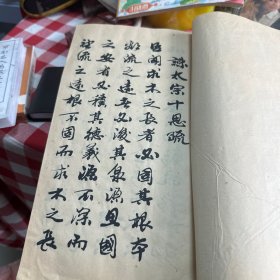 諫太宗十思疏
臣聞求木之長者必固其根本
欲流之遠者必浚其泉源思國
之安者必積其德義源不深而
望流之遠根不固而求木之長